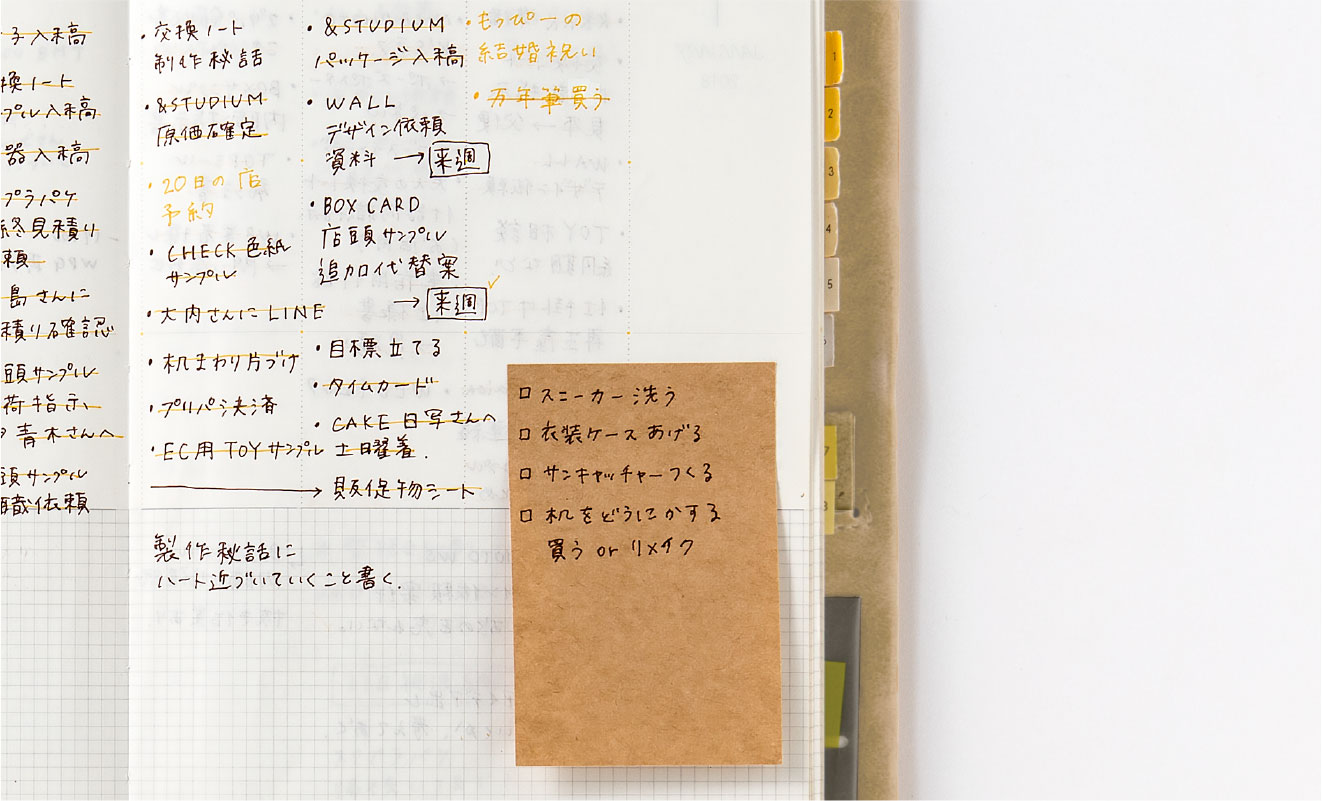 子入稿
換ノート
プル入稿
器入稿
プラパケ
終見積り
頼
島さんに
積り確認
頭サンプル
荷指示
青木さんへ
頭サンプル
職依頼
・交換ノート
制作秘話
・&STUDIUM
原価確定
・20日の店
予約
・CHECK色紙
サンプル
・大内さんにLINE
・机まわり片づけ
・プリパ決済
・EC用TOYサンプル
製作秘話に
ハート近づいていくこと書く.
・&STUDIUM
パッケージ入稿
・WALL
デザイン依頼
資料 → 来週
・BOX CARD
店頭サンプル
追加代替案
→ 来週
・目標立てる
・タイムカード
・CAKE日写さんへ
土日曜着.
→ 販促物シート
・もっぴーの
結婚祝い
・万年筆買う
□スニーカー洗う
□衣装ケースあげる
□サンキャッチャーつくる
□机をどうにかする
買う or リメイク
1
2
3
4
5